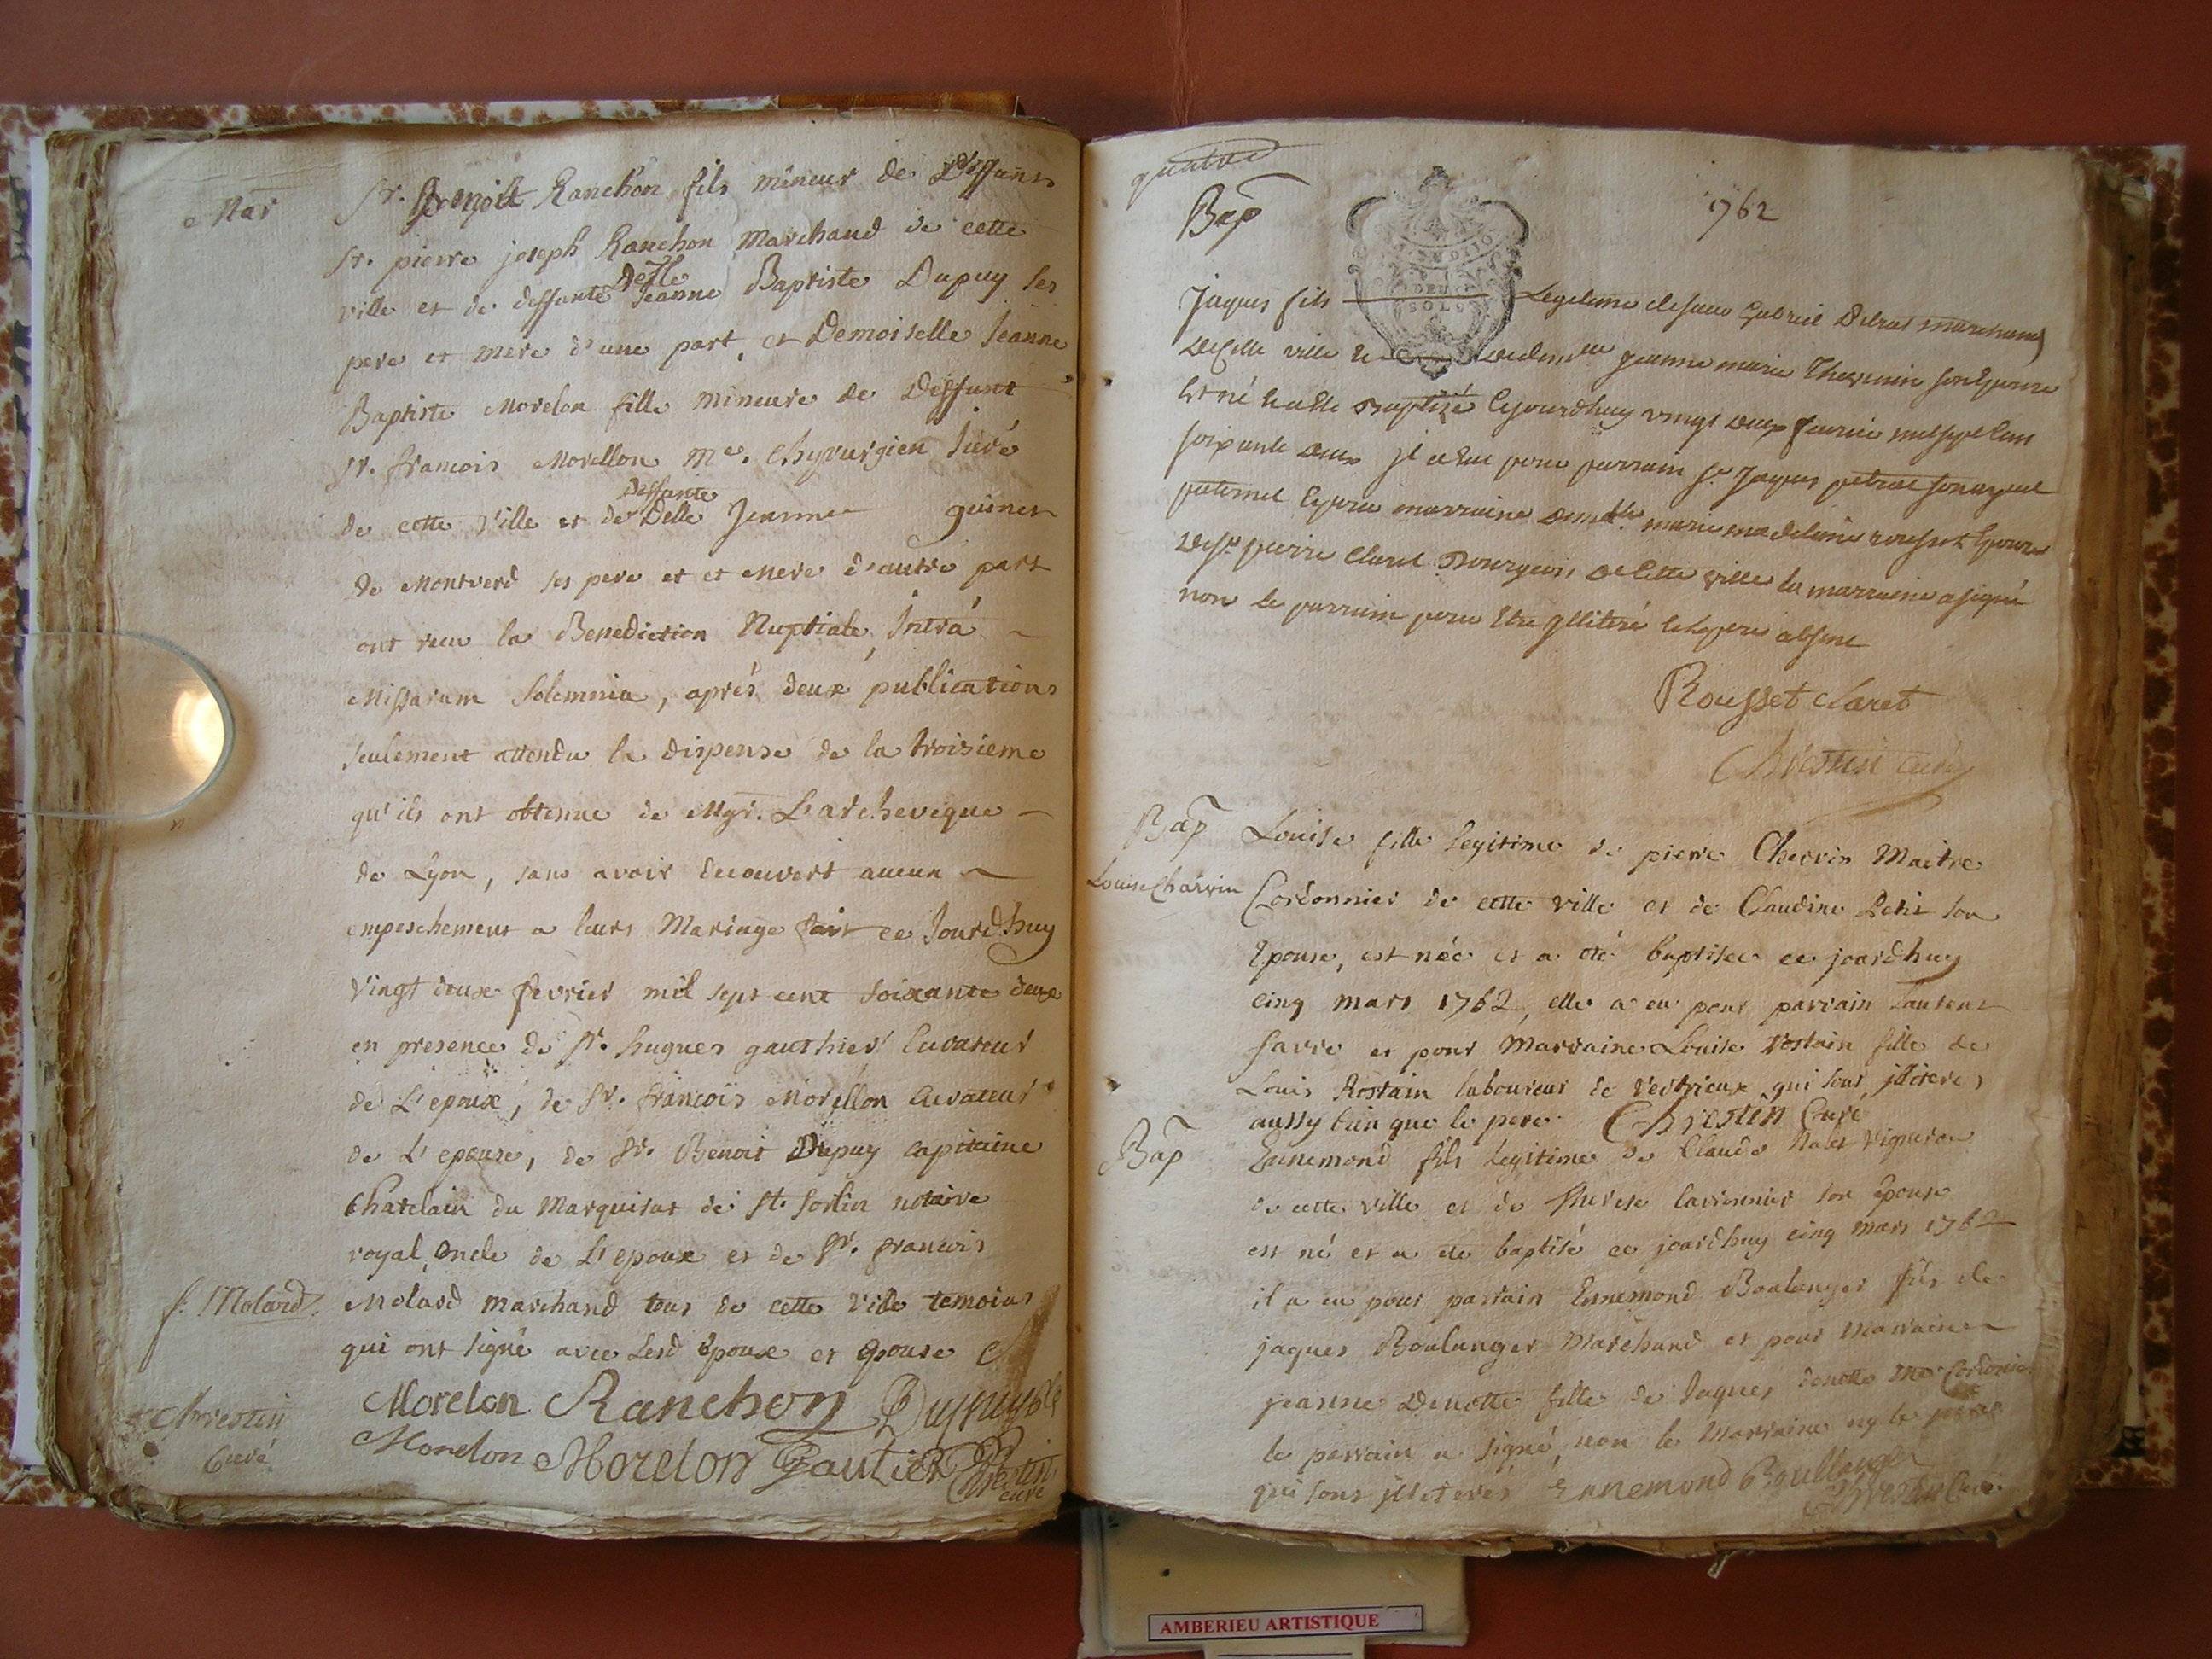 Mar
Sr. Benoist Ranchon fils mineur de Deffunts
Sr. pierre joseph Ranchon Marchand de cette
ville et de deffunte Delle Jeanne Baptiste Dupuy ses
pere et mere d'une part, et Demoiselle Jeanne
Baptiste Morelon fille mineure de Deffunt
Sr. francois Morellon Me. Chyrurgien Juré
de cette Ville et de deffunte Delle Jeanne guinet
de Montverd ses pere et et mere d'autre part
ont reçu la Benediction Nuptiale, Intrà
Missarum Solemnia, aprés deux publications
seulement attendu la dispense de la troisieme
qu'ils ont obtenue de Mgr. L'archeveque
de Lyon, sans avoir decouvert aucun
empeschement a leurs Mariage fait ce Jourdhuy
vingt deux fevrier mil sept cent soixante deux
en presence de Sr. hugues gauthier Curateur
de L'epoux, de Sr. françois Morellon Curateur
de L'epouse, de Sr. Benoit Dupuy capitaine
Chatelain du Marquisat de St. Sorlin notaire
royal, oncle de L'epoux et de Sr. francois
Molard marchand tous de cette Ville temoins
qui ont signé avec Lesd epoux et epouse
f. Molard
Morelon Ranchon Dupuy
Morelon Morelon Gautier Chrestin curé
Chrestin
Curé
quatre
Bap
1762
DEUX
SOLS
Jaques fils Legitime de sieur Gabriel marchand
de cette ville et de demelle jeanne marie Thevenin son Epouse
Est né et a Esté Baptizé Cejourdhuy vingt deux fevrier mil sept Cens
soixante deux il a Eue pour parrain Sr. Jaques son ayeul
paternel Et pour marraine demelle. marie madelaine rousset Epouse
de Sr. pierre Claret Bourgeois de Cette ville la marraine a signé
non le parrain pour Etre illiteré le pere absent
Rousset Claret
Chrestin curé
Bap
Louise Charvin
Louise fille legitime de pierre Chervin Maitre
Cordonnier de cette ville et de Claudine Petit son
Epouse, est née et a eté baptisée ce jourdhuy
cinq mars 1762, elle a eu pour parrain Laurent
favre et pour Marraine Louise Rostain fille de
Louis Rostain laboureur de Vertrieux qui sont illiteres
aussy bien que le pere. Chrestin Curé
Bap
Ennemond fils legitime de Claude vigneron
de cette ville et de Therese son Epouse
est né et a eté baptisé ce jourdhuy cinq mars 1762
il a eu pour parrain Ennemond Boulanger fils de
jaques Boulanger Marchand et pour Marraine
jeanne Denotte fille de Jaques denotte me. Cordonier
le parrain a signé, non la Marraine ny le pere
qui sont illiterés Ennemond Boullanger
Chrestin Curé
AMBERIEU ARTISTIQUE